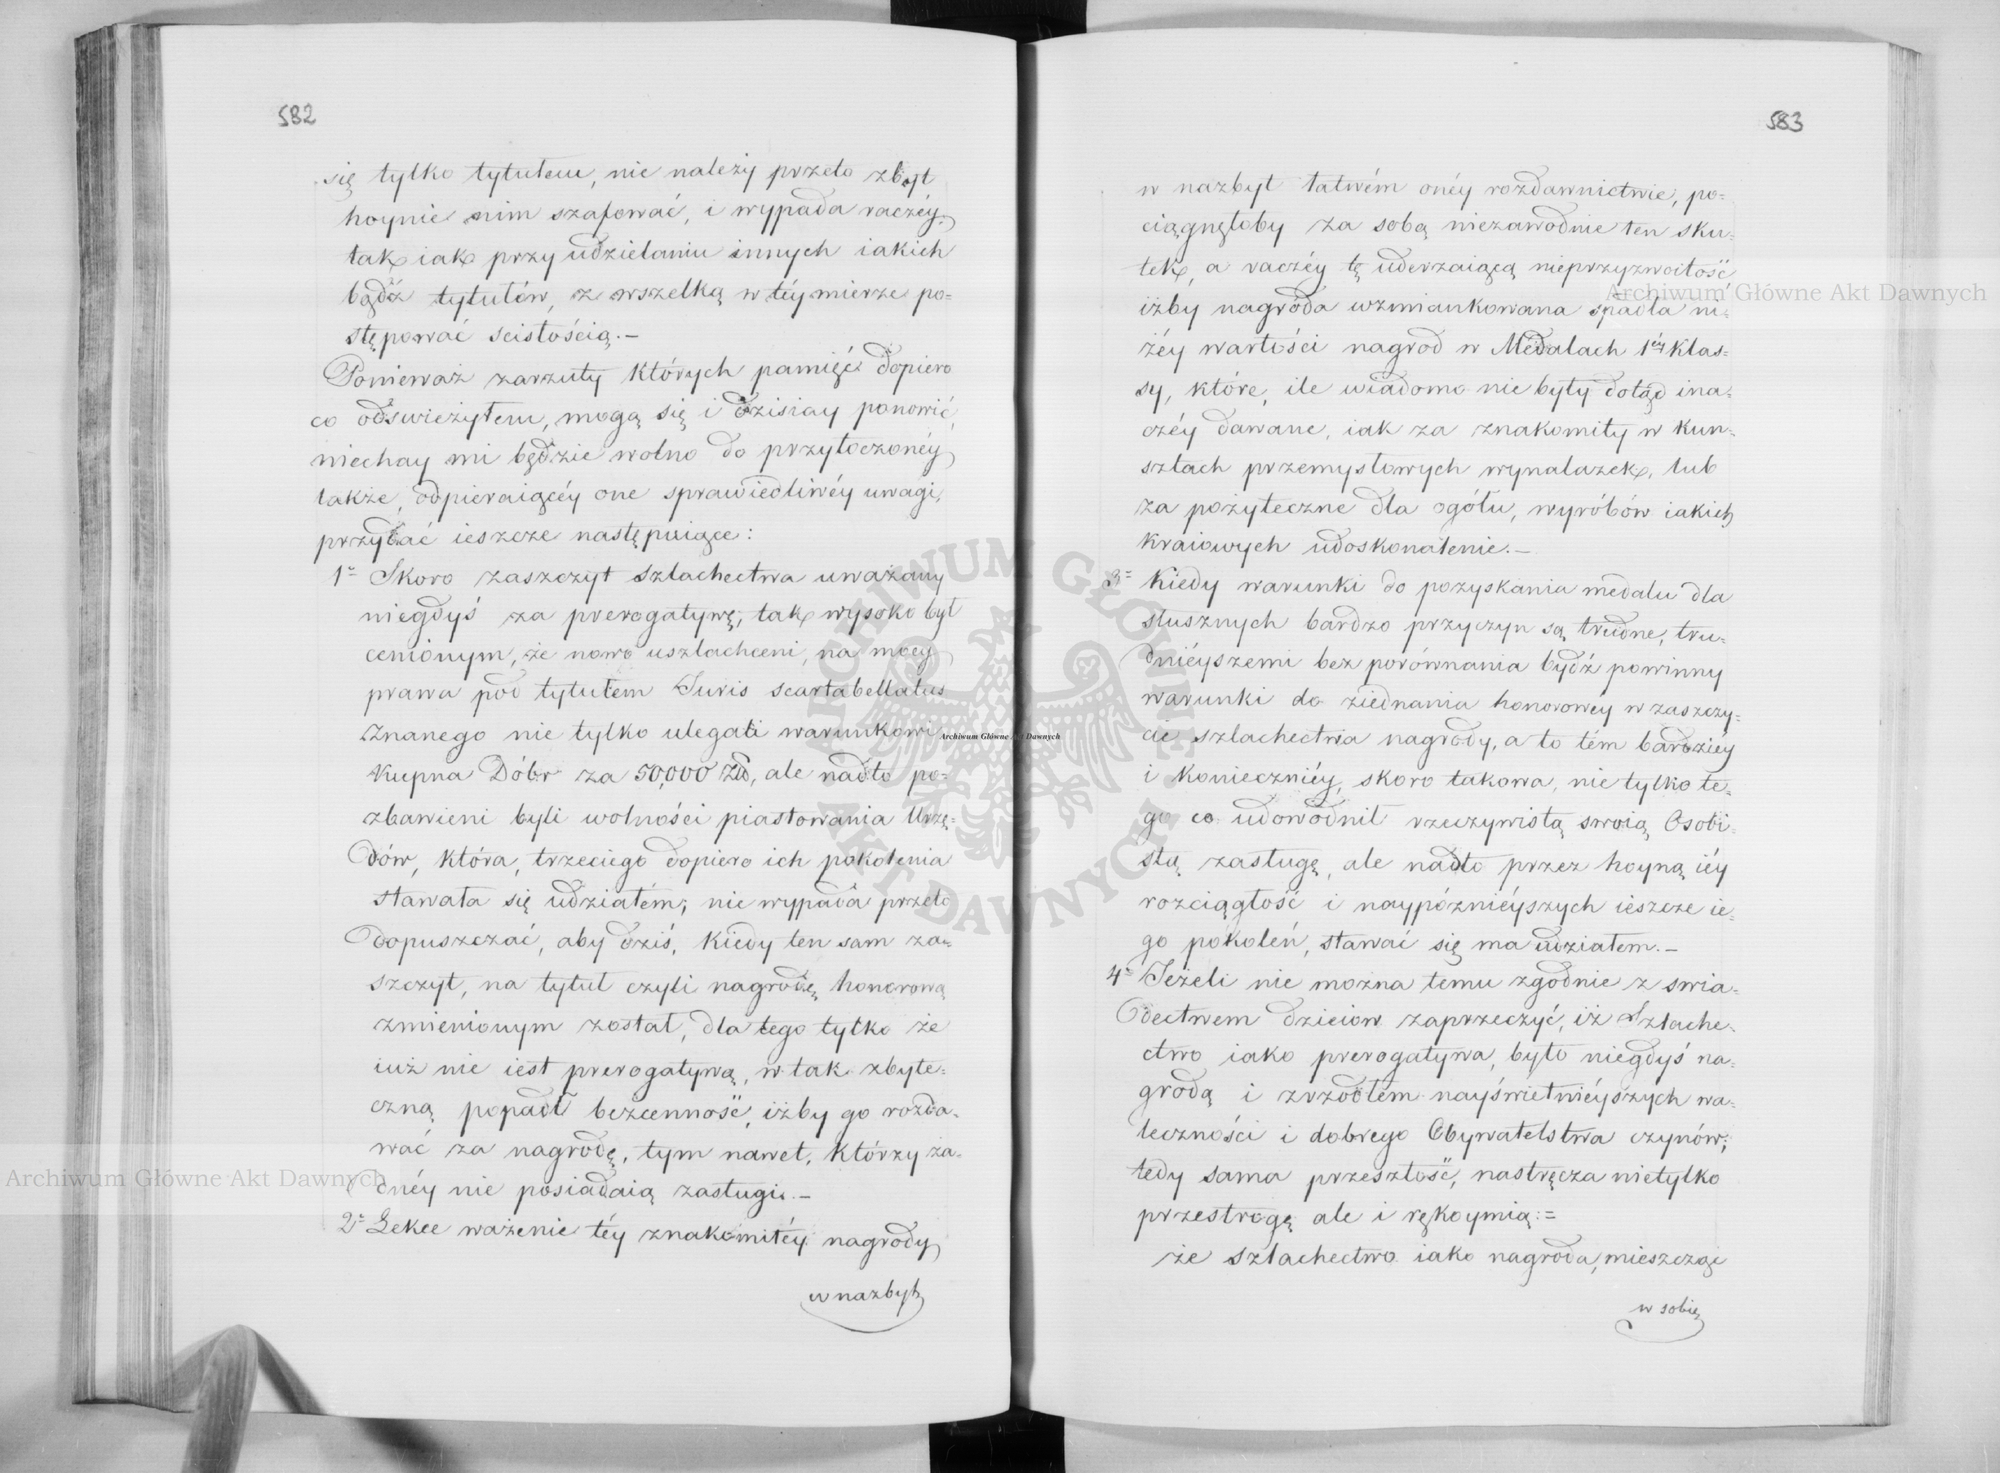 582
się tylko tytułem, nie należy przeto zbyt
hoynie nim szafować, i wypada raczéy
tak iak przy udzielaniu innych iakich
bądź tytułów, z wszelką w téy mierze po=
stępować scisłością.—
Ponieważ zarzuty których pamięć dopiero
co odświeżyłem, mogą się i dzisiay ponowić,
niechay mi będzie wolno do przytoczonéy
także, odpieraiącéy one sprawiedliwéy uwagi,
przydać ieszcze następuiące:
1= Skoro zaszczyt szlachectwa uważany
niegdyś za prerogatywę, tak wysoko był
cenionym, że nowo uszlachceni, na mocy
prawa pod tytułem Juris scartabellatus
znanego nie tylko ulegali warunkowi
kupna Dóbr za 50,000 Złł, ale nadto po=
zbawieni byli wolności piastowania Urzę=
dów, która, trzeciego dopiero ich pokolenia
stawała się udziałém; nie wypada przeto
dopuszczać, aby dziś, kiedy ten sam za=
szczyt, na tytuł czyli nagrodę honorową
zmienionym został, dla tego tylko że
iuż nie iest prerogatywą, w tak zbyte=
czną popadł bezcenność, iżby go rozda=
wać za nagrodę, tym nawet, którzy ża=
dnéy nie posiadaią zasługi.—
2= Lekce ważenie téy znakomitéy nagrody
w nazbyt
583
w nazbyt łatwém onéy rozdawnictwie, po=
ciągnęłoby za sobą niezawodnie ten sku=
tek, a raczéy tę uderzaiącą nieprzyzwoitość
iżby nagroda wzmiankowana spadła ni=
żéy wartości nagrod w Medalach 1éy klas=
sy, które, ile wiadomo nie były dotąd ina=
czéy dawane, iak za znakomity w kun=
sztach przemysłowych wynalazek, lub
za pożyteczne dla ogółu, wyróbów iakich
kraiowych udoskonalenie.—
3= Kiedy warunki do pozyskania medalu dla
słusznych bardzo przyczyn są trudne, tru=
dniéyszemi bez porównania bydź powinny
warunki do ziednania honorowey w zaszczy=
cie szlachectwa nagrody, a to tém bardziéy
i konieczniéy, skoro takowa, nie tylko te=
go co udowodnił rzeczywistą swoią Osobi=
stą zasługę, ale nadto przez hoyną iéy
rozciągłość i naypózniéyszych ieszcze ie=
go pokoleń, stawać się ma udziałem.—
4= Jeżeli nie można temu zgodnie z swia=
dectwem dzieiów zaprzeczyć, iż Szlache=
ctwo iako prerogatywa, było niegdyś na=
grodą i zrzodłém nayświetniéyszych wa=
leczności i dobrego Obywatelstwa czynów;
tedy sama przeszłość, nastręcza nietylko
przestrogę ale i rękoymią:=
że szlachectwo iako nagroda, mieszcząc
w sobie
Archiwum Główne Akt Dawnych
Archiwum Główne Akt Dawnych
Archiwum Główne Akt Dawnych
ARCHIWUM GŁÓWNE AKT DAWNYCH